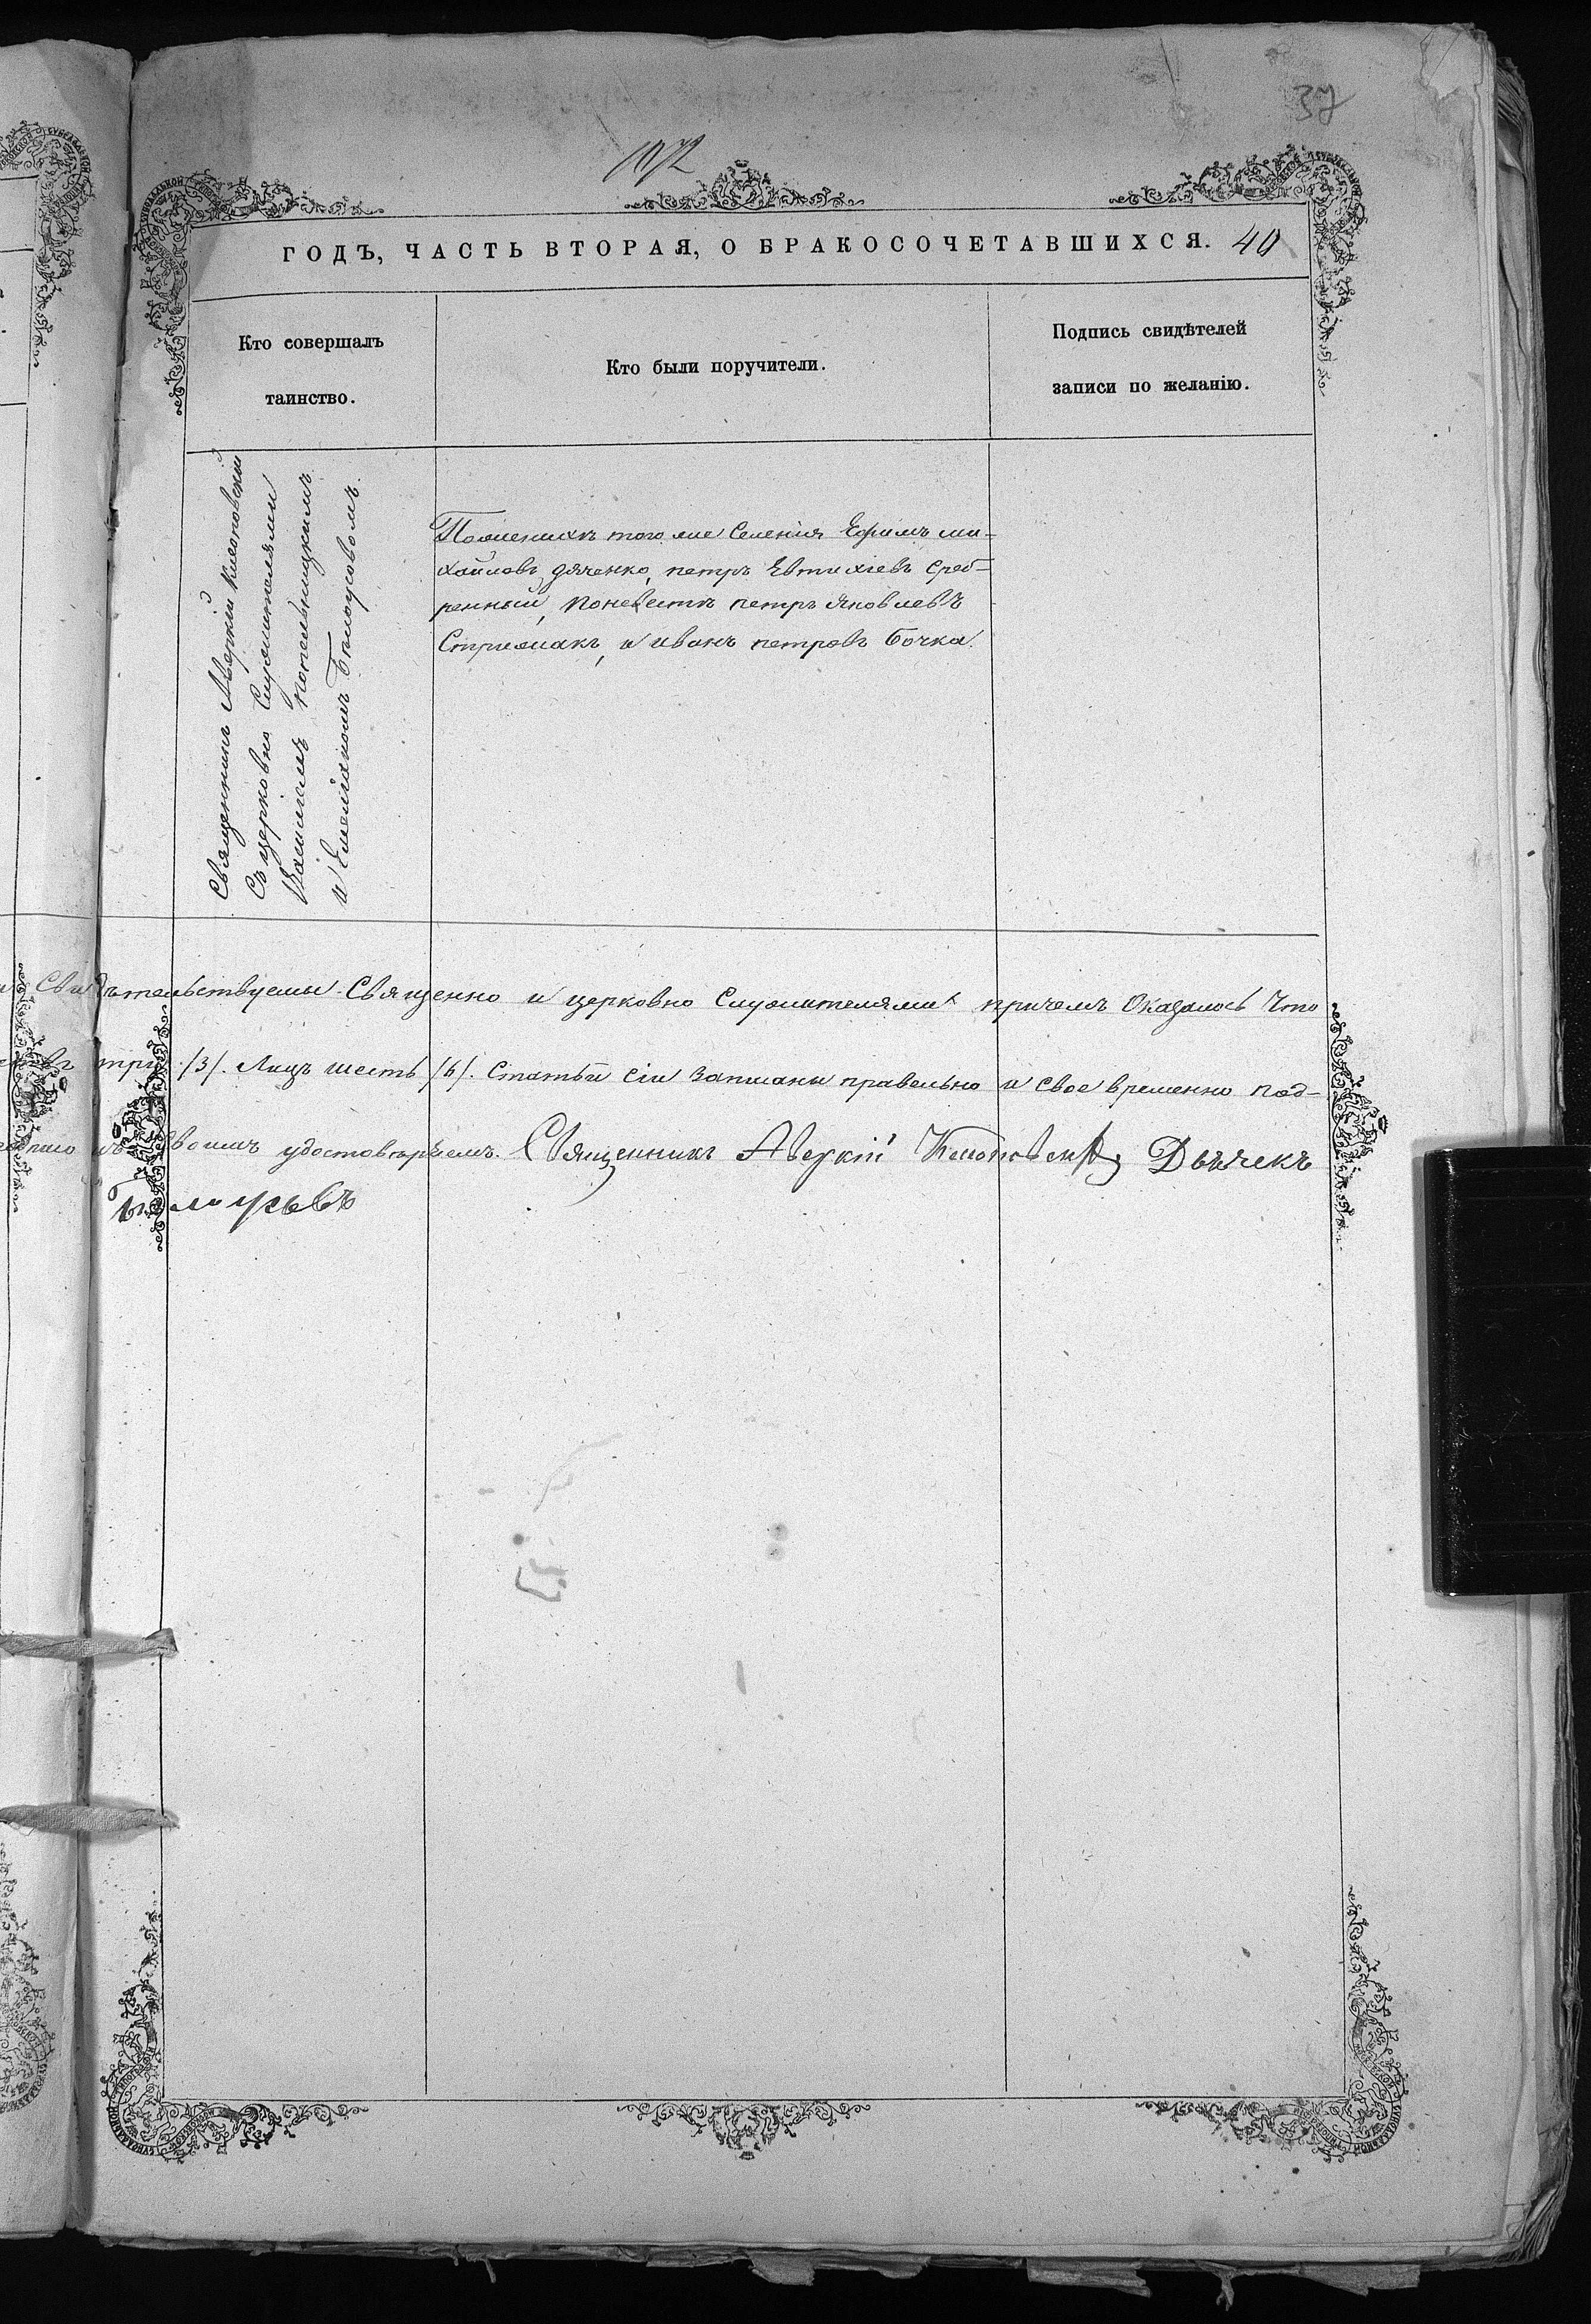 37
102
ГОДЪ, ЧАСТЬ ВТОРАЯ, О БРАКОСОЧЕТАВШИХСЯ. 40
Кто совершалъ
таинство.
Кто были поручители.
Подпись свидѣтелей
записи по желанію.
Священникъ Аверкій
Съ церковно Служителями
Василіемъ Попельницкимъ
и Емеліаномъ Бѣлоусовомъ.
Пожениху того же Селенія Ефимъ ми-
хайловъ дяченко, петръ Евтихіевъ Среб-
ренный, Поневестѣ петръ Яковлевъ
Стрижакъ, и иванъ петровъ Бочка.
Свидѣтельствуемы Священно и церковно Служителями причемъ Оказалось Что
три /3/. Лицъ шесть /6/. Статьи сіи Записаны правельно и свое временно под-
удостовѣряемъ. Священникъ Аверкій Дьячекъ